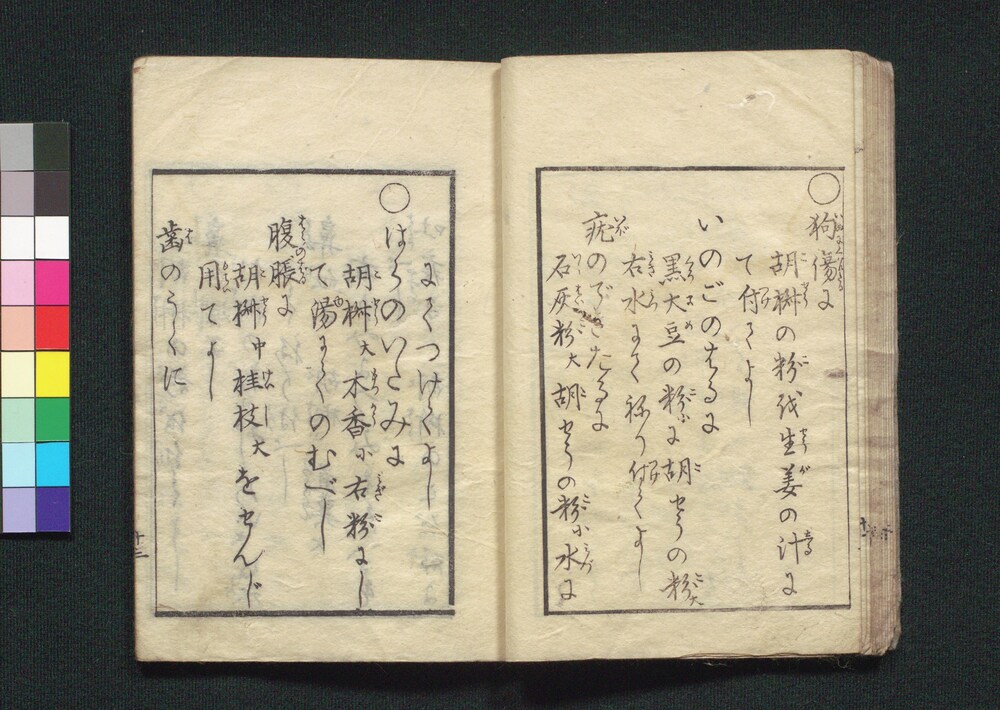 ○
狗傷に
胡椒の粉を生姜の汁に
て付てよし
いのごのはるに
黒大豆の粉小に胡せうの粉大
右水にてねり付てよし
疣のできたるに
石灰粉大胡せうの粉小水に
てつけてよし
○
はらのいたみに
胡椒大木香小右粉にし
て湯にてのむべし
腹脹に
胡椒中桂枝大をせんじ
用てよし
歯のうくに
十三